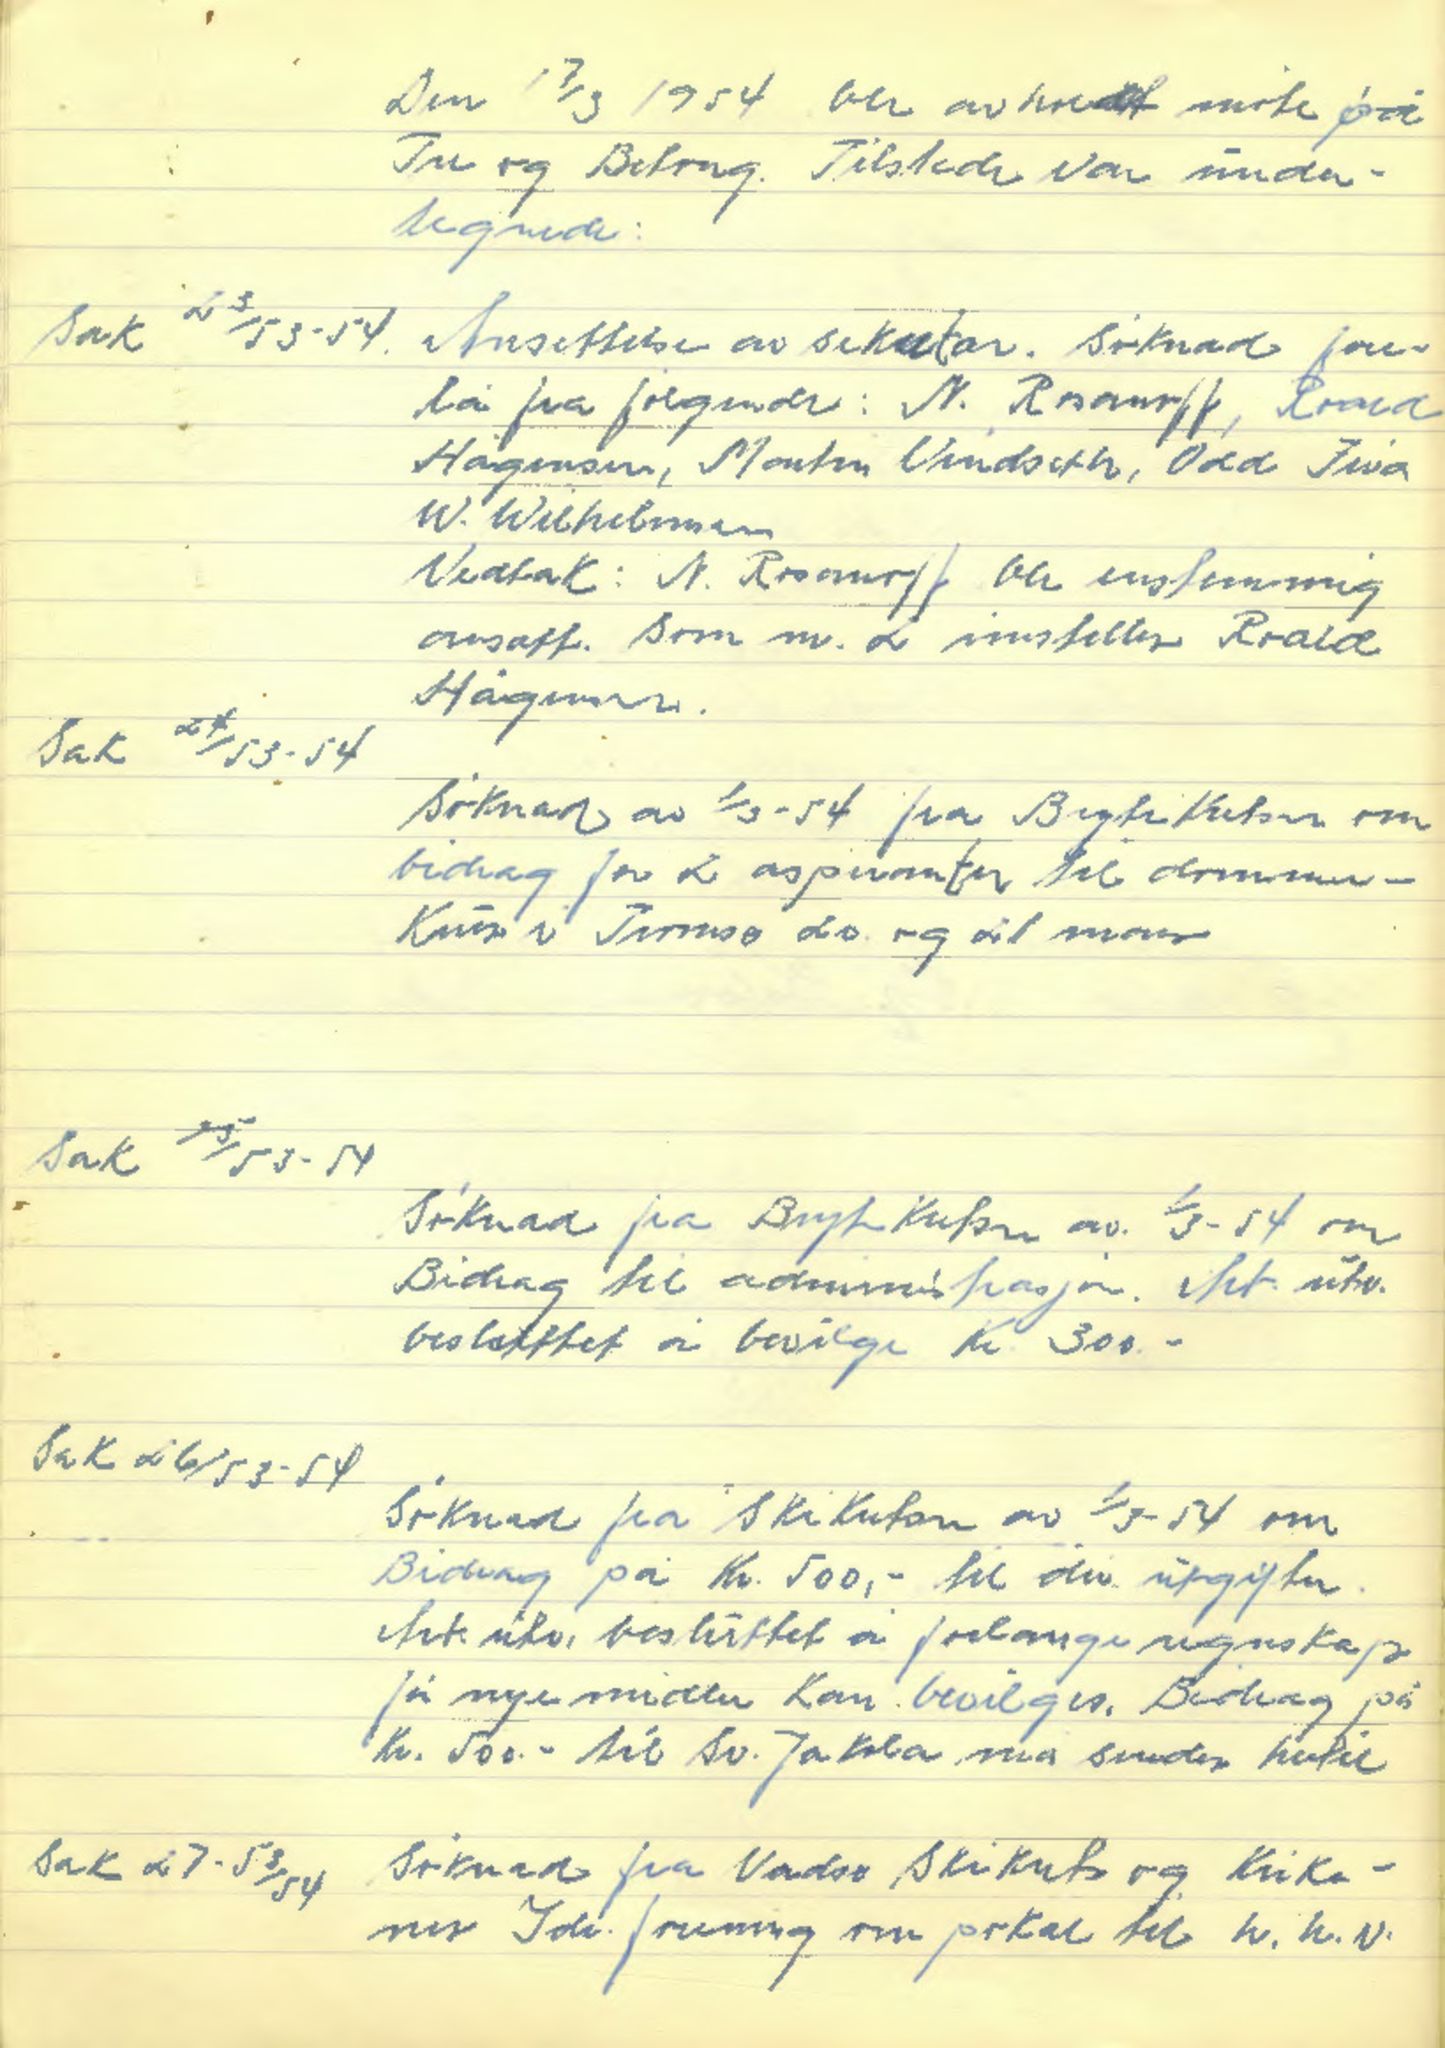 Den 17/3 1954 ble avholdt möte på
Tre og Betong. Tilstede var under-
tegnede:
Sak 23/53-54. Ansettelse av sekretær. Söknad fore-
lå fra fölgende: N. Rosanoff, Roald
Hågensen, Morten Vindseth, Odd Ivar
W. Wilhelmsen
Vedtak: N. Rosanoff ble enstemmig
ansatt. Som nr. 2 innstilles Roald
Hågensen.
Sak 24/53-54
Söknad av 1/3-54 fra Brytekretsen om
bidrag for 2 aspiranter til dommer-
kurs i Tromsö 20. og 21 mars
Sak 25/53-54
Söknad fra Brytekretsen av. 1/3-54 om
Bidrag til administrasjon. Arb. utv.
besluttet å bevilge kr. 300.-
Sak 26/53-54
Söknad fra Skikretsen av 1/3-54 om
Bidrag på kr. 500,- til div. utgifter.
Arb. utv. besluttet å forlange regnskap
för nye midler kan bevilges. Bidrag på
kr. 500.- til Sv. Jakola må sendes hertil
Sak 27-53/54 Söknad fra Vadsö Skikrets og Kirke-
nes Idr. forening om pokal til h. h. v.